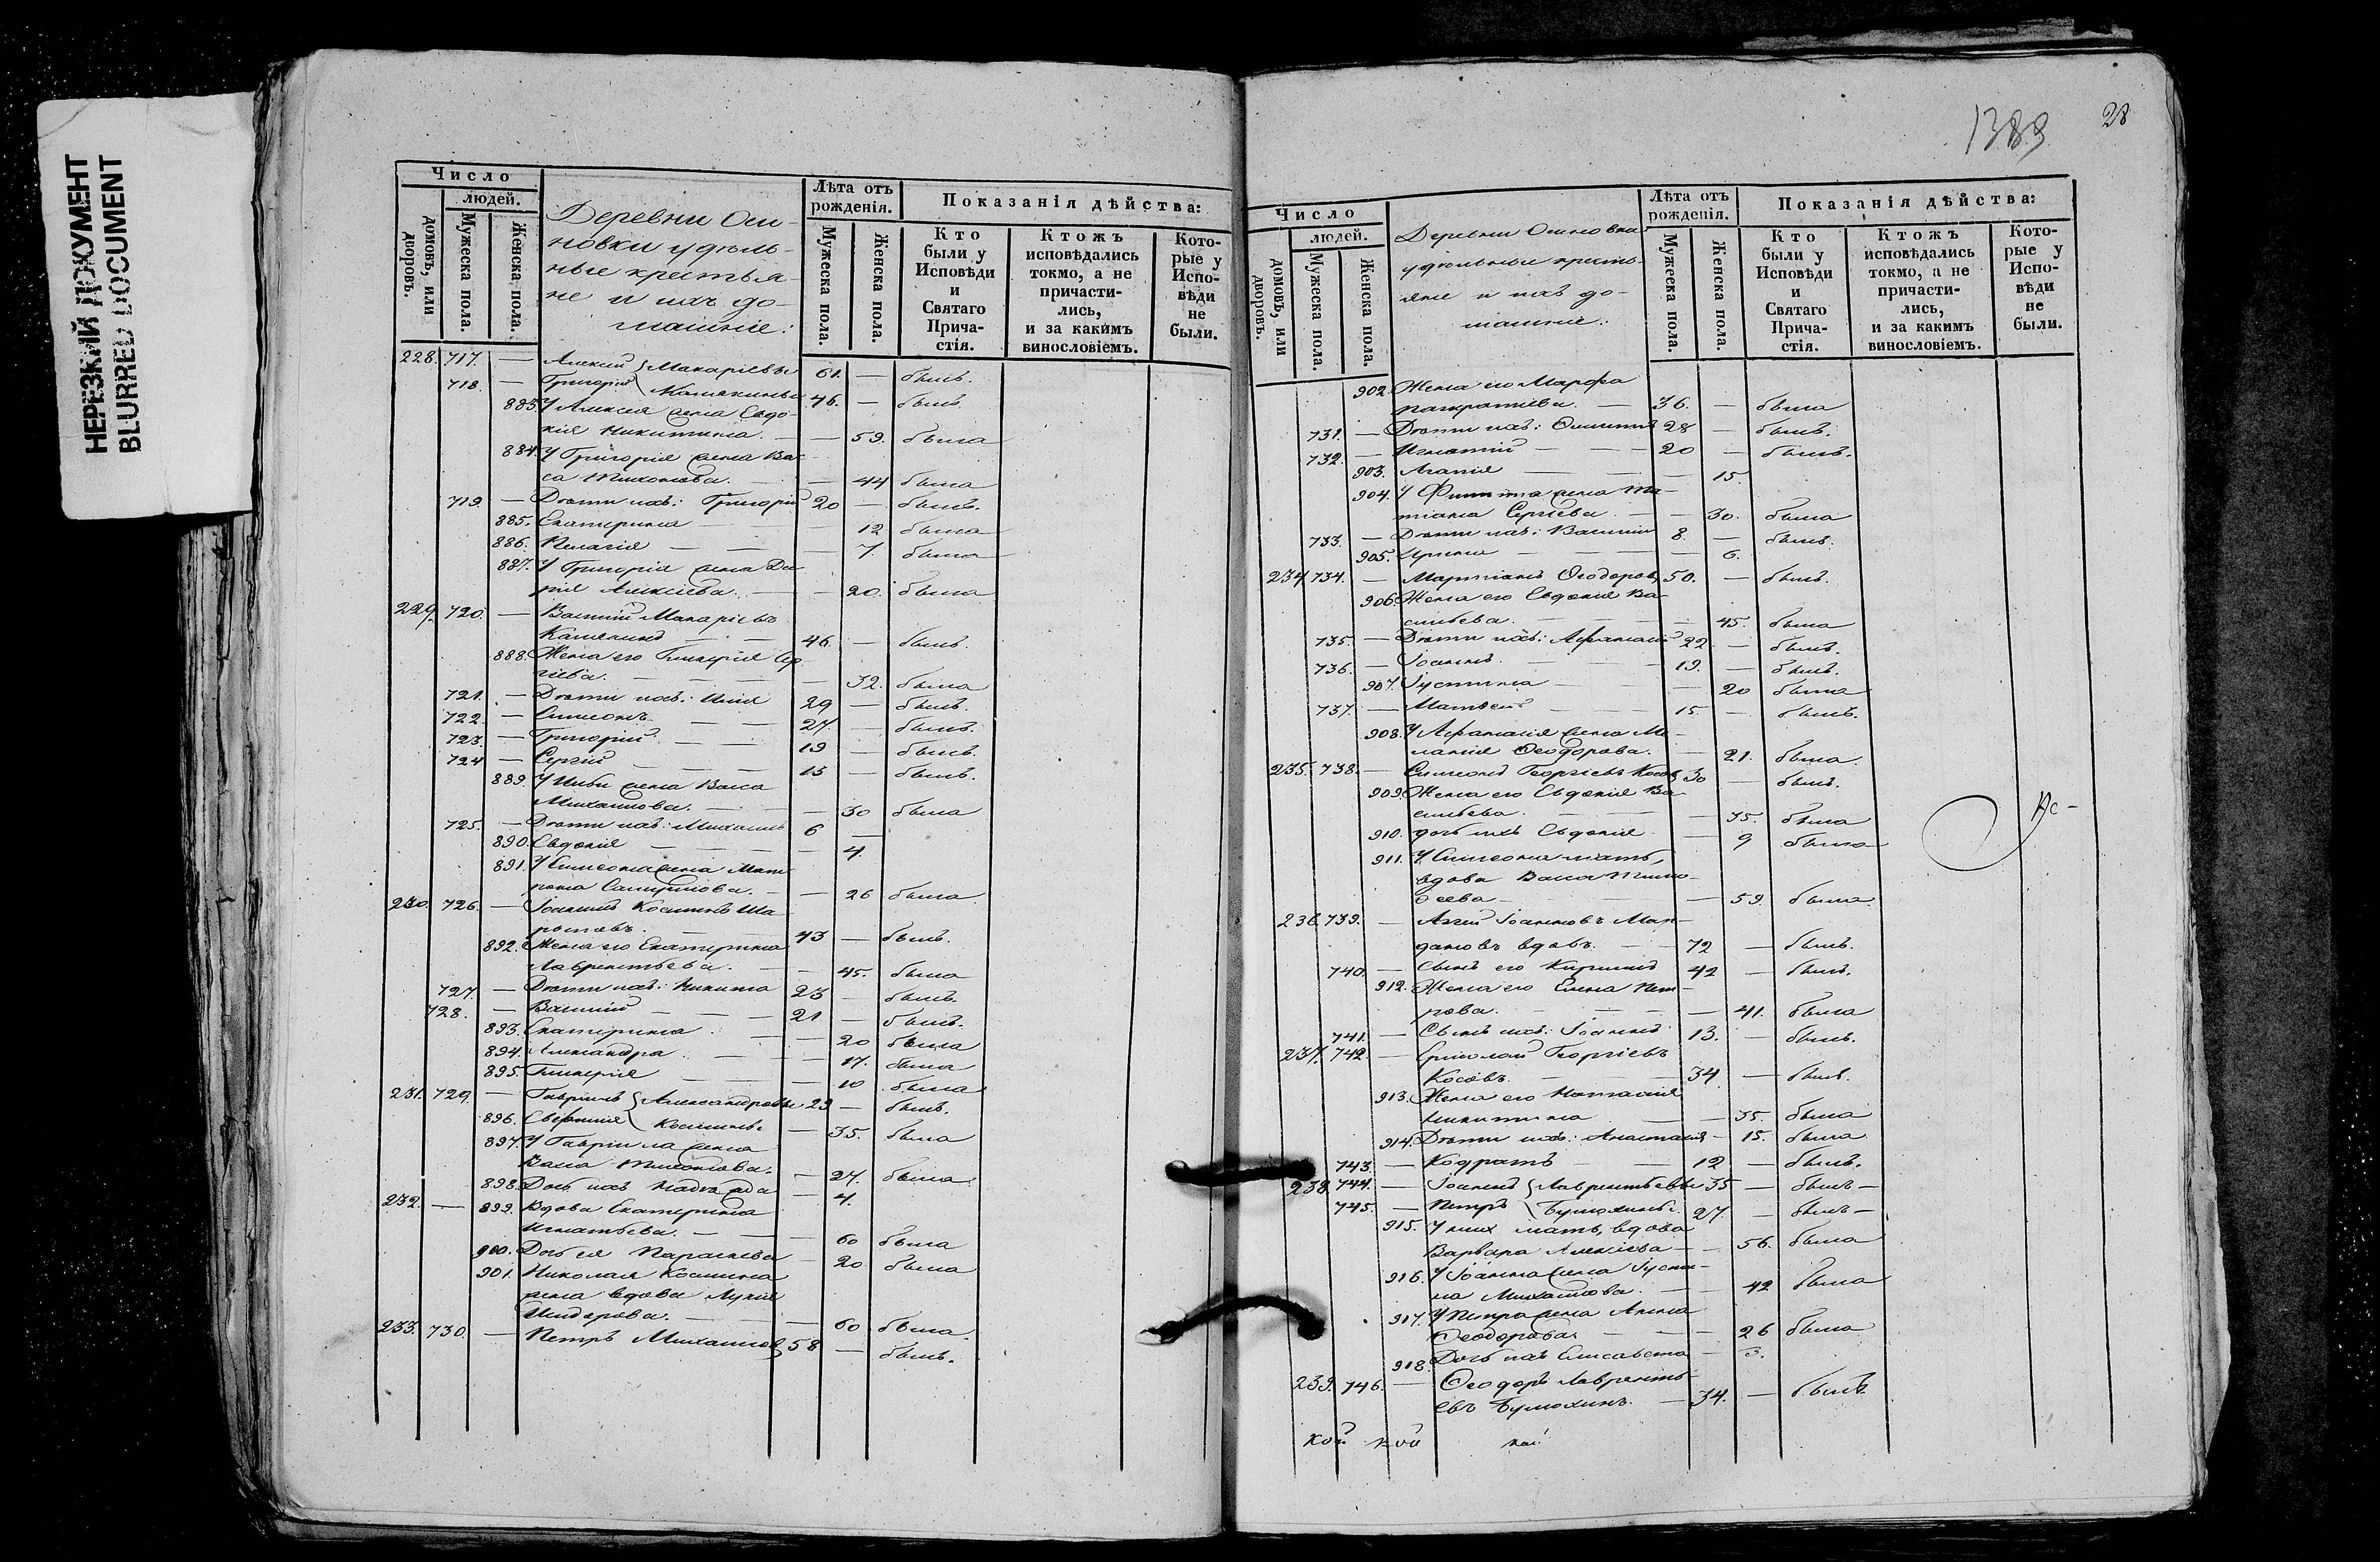 НЕРЕЗКИЙ ДОКУМЕНТ
BLURRED DOCUMENT
Число
людей.
домовъ, или дворовъ.
Мужеска пола.
Женска пола.
Деревни Оси-
новки удѣль-
ные крестья-
не и ихъ до-
машніе:
Лѣта отъ рожденія.
Мужеска пола.
Женска пола.
Показанія дѣйства:
Кто были у Исповѣди и Святаго Прича- стія.
Ктожъ исповѣдались токмо, а не причасти- лись, и за какимъ винословіемъ.
Кото- рые у Испо- вѣди не были.
228. 717. — Алексій } Макаріевы 61. — былъ.
718. — Григорій 46. — былъ.
883. У Алексія жена Евдо-
кія Никитина. — — 59. была
884. У Григорія жена Вас-
са Тихонова. — — 44 была
719. — Дѣти ихъ: Григорій 20 — былъ.
885. Екатерина — — 12 была
886. Пелагія — — — 7 была
887. У Григорія жена Да-
рія Алексіева. — — 20. была
229. 720. — Василій Макаріевъ
46. — былъ.
888. Жена его Гликерія Сер-
гіева. — — — 32. была
721. — Дѣти ихъ: Илія 29 — былъ.
722. — Симеонъ. — — 27. — былъ.
723. — Григорій. — — 19 — былъ.
724 — Сергій — — 15 — былъ.
889. У Иліи жена Васса
Михаилова. — — — 30 была
725. — Дѣти ихъ: Михаилъ 6 —
890. Евдокія — — — 4.
891. У Симеона жена Мат-
рона Самуилова. — — 26 была
230. 726. — Іоаннъ Косминъ
43 — былъ.
892. Жена его Екатерина
Лаврентьева. — — 45. была
727. — Дѣти ихъ: Никита 23 — былъ.
728. — Василій — — 21 — былъ.
893. Екатерина. — — 20 была
894. Александра. — — 17. была
895. Гликерія — — 10 была
231. 729. — Гавріилъ } Александровы 29 — былъ.
896. Евфимія Космины. — 35. была
897. У Гавріила жена
Васса Тихонова. — 27. была
898. Дочь ихъ Надежда — 4.
232. — 899. Вдова Екатерина
Игнатьева. — — 60 была
900. Дочь ея Параскева 20 была
901. Николая Космина
жена вдова Лукія
Исидорова. — — 60 была.
233. 730. — Петръ Михаиловъ 58 — былъ.
1389
28
Число
людей.
домовъ, или дворовъ.
Мужеска пола.
Женска пола.
Деревни Осиновки
удѣльные кресть-
яне и ихъ до-
машніе:
Лѣта отъ рожденія.
Мужеска пола.
Женска пола.
Показанія дѣйства:
Кто были у Исповѣди и Святаго Прича- стія.
Ктожъ исповѣдались токмо, а не причасти- лись, и за какимъ винословіемъ.
Кото- рые у Испо- вѣди не были.
902. Жена его Марфа
Панкратіева. — 36. — была
731. — Дѣти ихъ: Филиппъ 28 — былъ.
732. — Игнатій — — 20 — былъ.
903. Агапія — — — 15.
904. У Филиппа жена Та-
тіана Сергіева. — — 30. была
733. — Дѣти ихъ: Василій 8. — былъ.
905. Ирина — — — 6.
234 734. — Мартіанъ Ѳеодоровъ 50. — былъ.
906. Жена его Евдокія Ва-
сильева. — — — 45. была
735. — Дѣти ихъ: Аѳанасій 22 — былъ.
736. — Іоаннъ. — — 19. — былъ.
907. Іустина — — — 20 была
737. — Матѳей — — 15. — былъ.
908. У Аѳанасія жена Ме-
ланія Ѳеодорова. — 21. была.
235. 738. — Симеонъ Георгіевъ Косовъ 30 — былъ.
909. Жена его Евдокія Ва-
сильева. — — — 35. была
910. дочь ихъ Евдокія — — 9 была
911. У Симеона мать,
вдова Васса Тимо-
ѳеева — — — 59. была
Ис-
236. 739. — Аггей Іоанновъ
вдовъ. — — 72 — былъ.
740. — Сынъ его Кириллъ 42 — былъ.
912. Жена его Елена Пет-
рова. — — — 41. была
741. — Сынъ ихъ: Іоаннъ 13. — былъ.
237. 742. — Ермолай Георгіевъ
Косовъ. — — 34 — былъ.
913. Жена его Наталія
Никитина — — 35. была
914. Дѣти ихъ: Анастасія — 15. была
743. — Кодратъ — — 12 — былъ.
238. 744. — Іоаннъ } Лаврентьевы 35 — былъ —
745. — Петръ 27. — былъ —
915. У нихъ мать, вдова
Варвара Алексіева — — 56. была
916. У Іоанна жена Іусти-
на Михаилова. — — 42 была
917. У Петра жена Анна
Ѳеодорова — — — 26 была
918. Дочь ихъ Елисавета — 3.
239. 746. — Ѳеодоръ Лаврентъ-
евъ — 34. — былъ